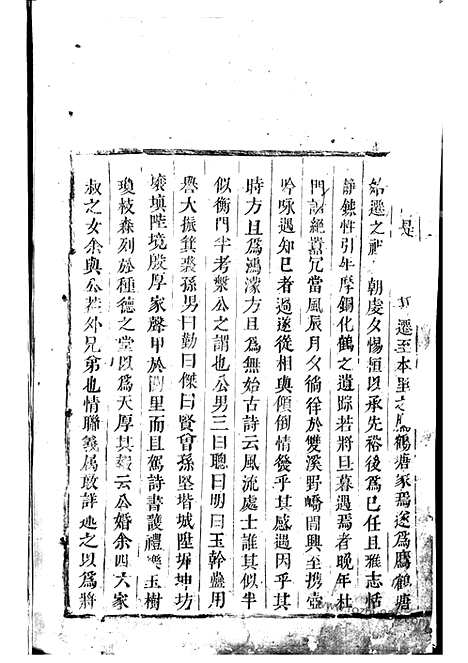 遷至本里之 鶴塘家焉遂爲鷹鶴塘
始遷之祖 朝虔夕惕恒以承先裕後爲己任且雅志恬
靜鍊性引年摩銅化鶴之遺踪若將旦暮遇焉者晚年杜
門謝絕囂冗當風辰月夕徜徉於雙溪野嶠間興至携壺
吟咏遇知己者過遂從相與傾倒情發乎其感遇因乎其
時方且爲鴻濛方且爲無始古詩云風流處士誰其似半
似衡門半考槃公之謂也公男三曰聰曰明曰玉幹蠱用
譽大振箕裘孫男曰勤曰傑曰賢會孫堅堦城陞墀坤坊
壕塡陛境殷厚家聲甲於閭里而且駕詩書護禮樂玉樹
瓊枝森列於種德之堂以爲天厚其 云公婚余四六家
叔之女余與公若外兄弟也情聯義属敢詳述之以爲將